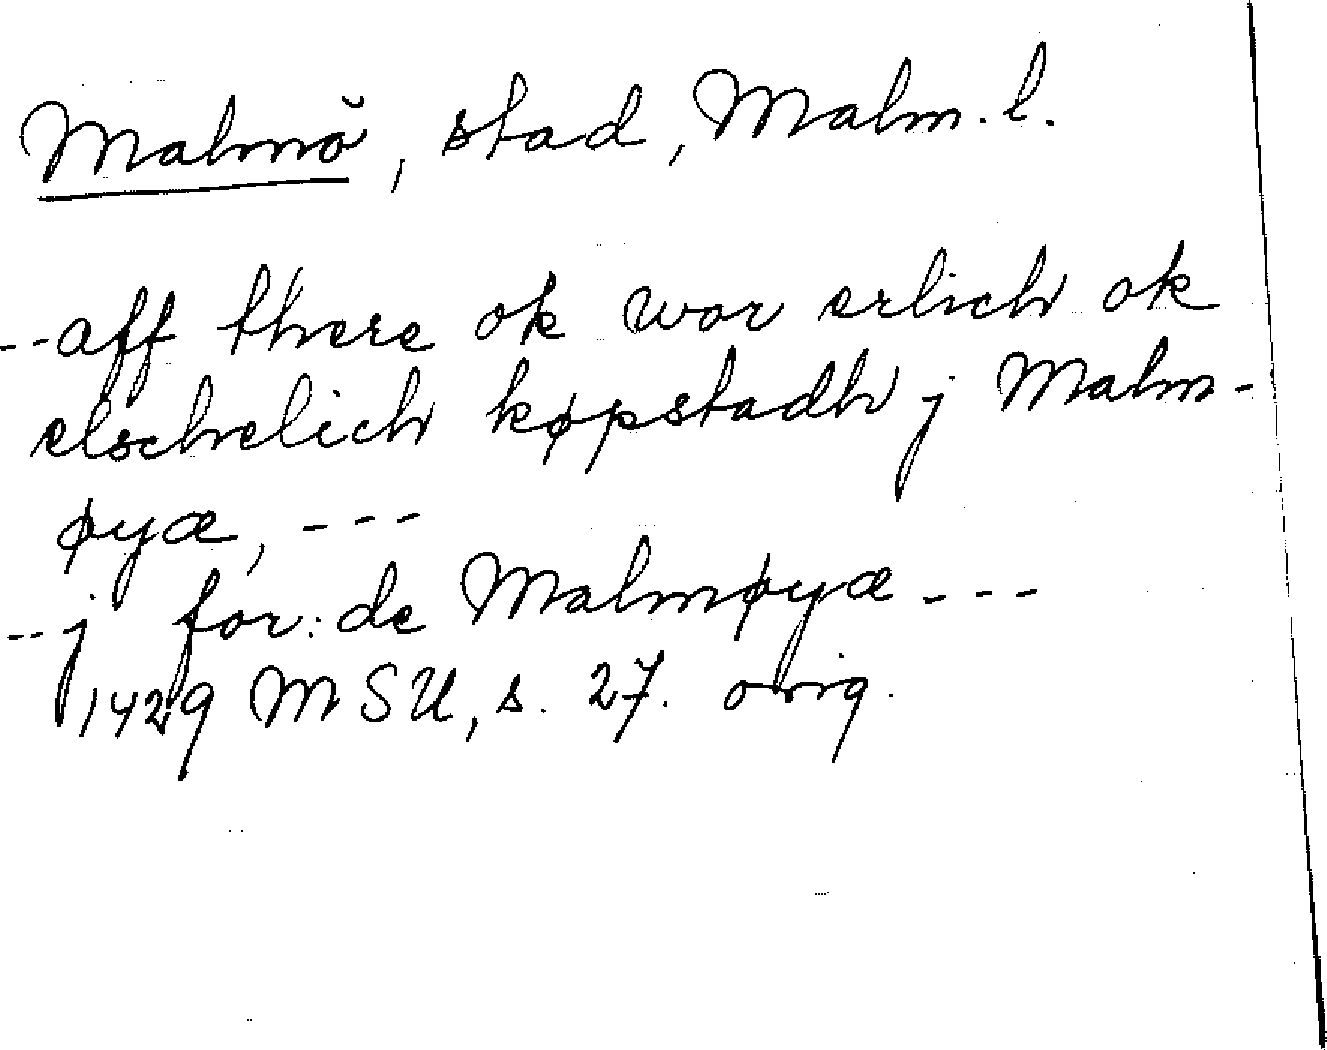 Malmö, stad, Malm. l.
--aff there ok wor erlich ok
elschelich køpstadh j Malm-
øyæ, ---
--j for: de Malmøyæ ---
1429 MSU, s. 27. orig.